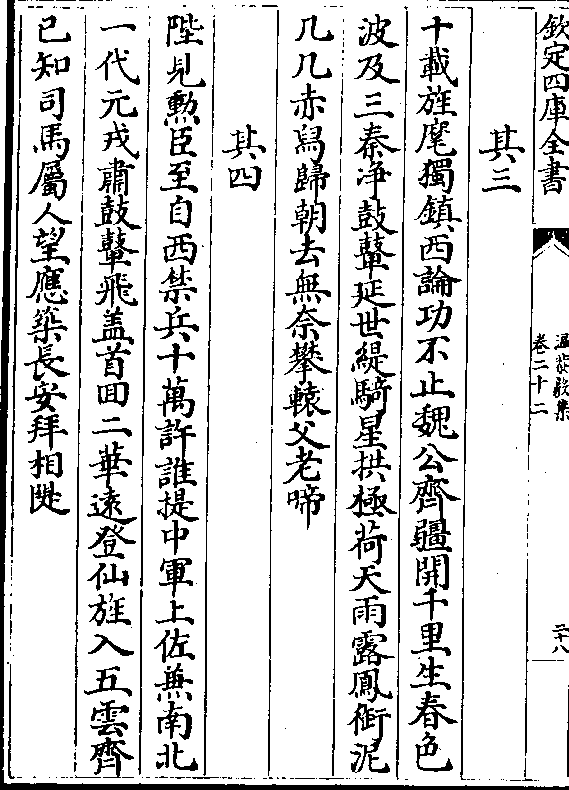 欽定四庫全書
溫恭毅集
卷二十二
二十八
其三
十載旌麾獨鎮西論功不止魏公齊疆開千里生春色
波及三秦净鼓鼙延世緹騎星拱極荷天雨露鳳銜泥
几几赤舄歸朝去無奈攀轅父老啼
其四
陛見勲臣至自西禁兵十萬許誰提中軍上佐兼南北
一代元戎肅鼓鼙飛盖首囬二華遠登仙旌入五雲齊
已知司馬屬人望應築長安拜相隄